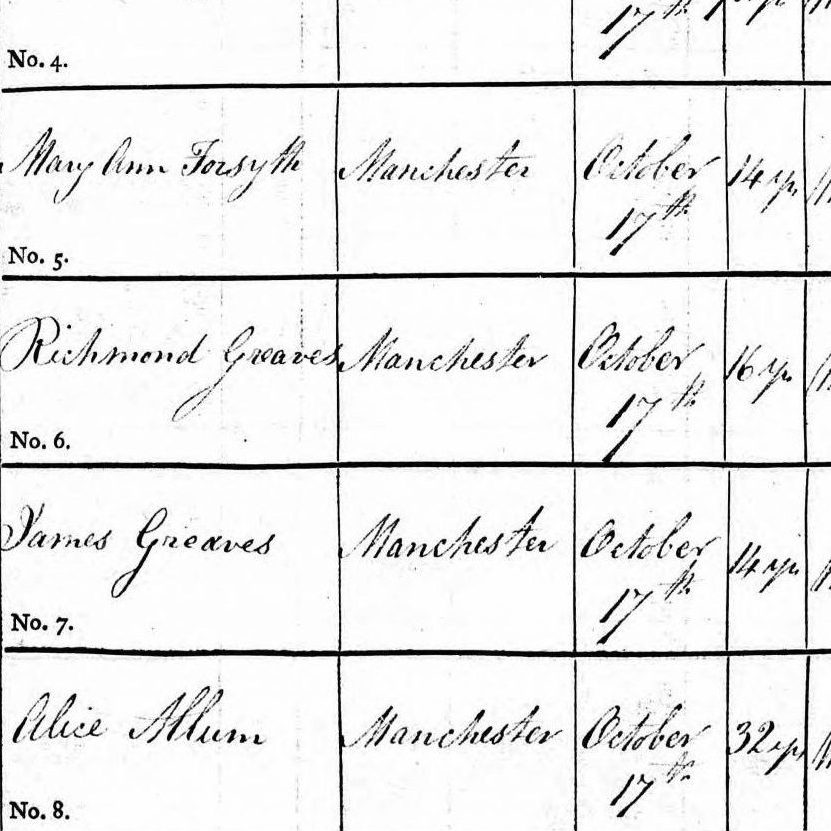 17th
No. 4.
Mary Ann Forsyth Manchester October 14 yrs
17th
No. 5.
Richmond Greaves Manchester October 16 yrs
17th
No. 6.
James Greaves Manchester October 14 yrs
17th
No. 7.
Alice Allum Manchester October 32 yrs
17th
No. 8.